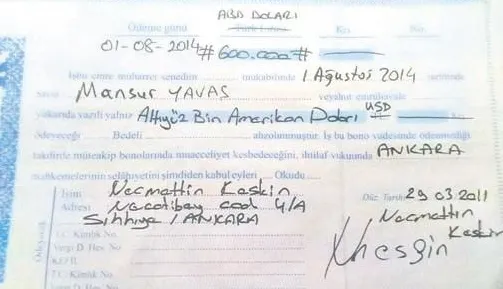 ABD DOLARI
Ödeme günü Türk Lirası Krş. No.
01-08-2014 #600.000#
İşbu emre muharrer senedim mukabilinde 1 Ağustos 2014 tarihinde
Mansur YAVAŞ veyahut emrühavale
yukarıda yazılı yalnız Altıyüz Bin Amerikan Doları USD
ödeyeceğ Bedeli ahzolunmuştur. İş bu bono vadesinde ödenmediği
takdirde müteakip bonolarında muacceliyet kesbedeceğini, ihtilaf vukuunda ANKARA
mahkemelerinin selâhiyetini şimdiden kabul eyleri Okudu
İsim Necmettin Keskin Düz. Tarihi 29 03 2011
Adresi Necatibey cad 4/A Necmettin
Sıhhiye / ANKARA Keskin
T.C. Kimlik No
Vergi D. Hes. No
KEFİL
T.C. Kimlik No
Vergi D. Hes. No